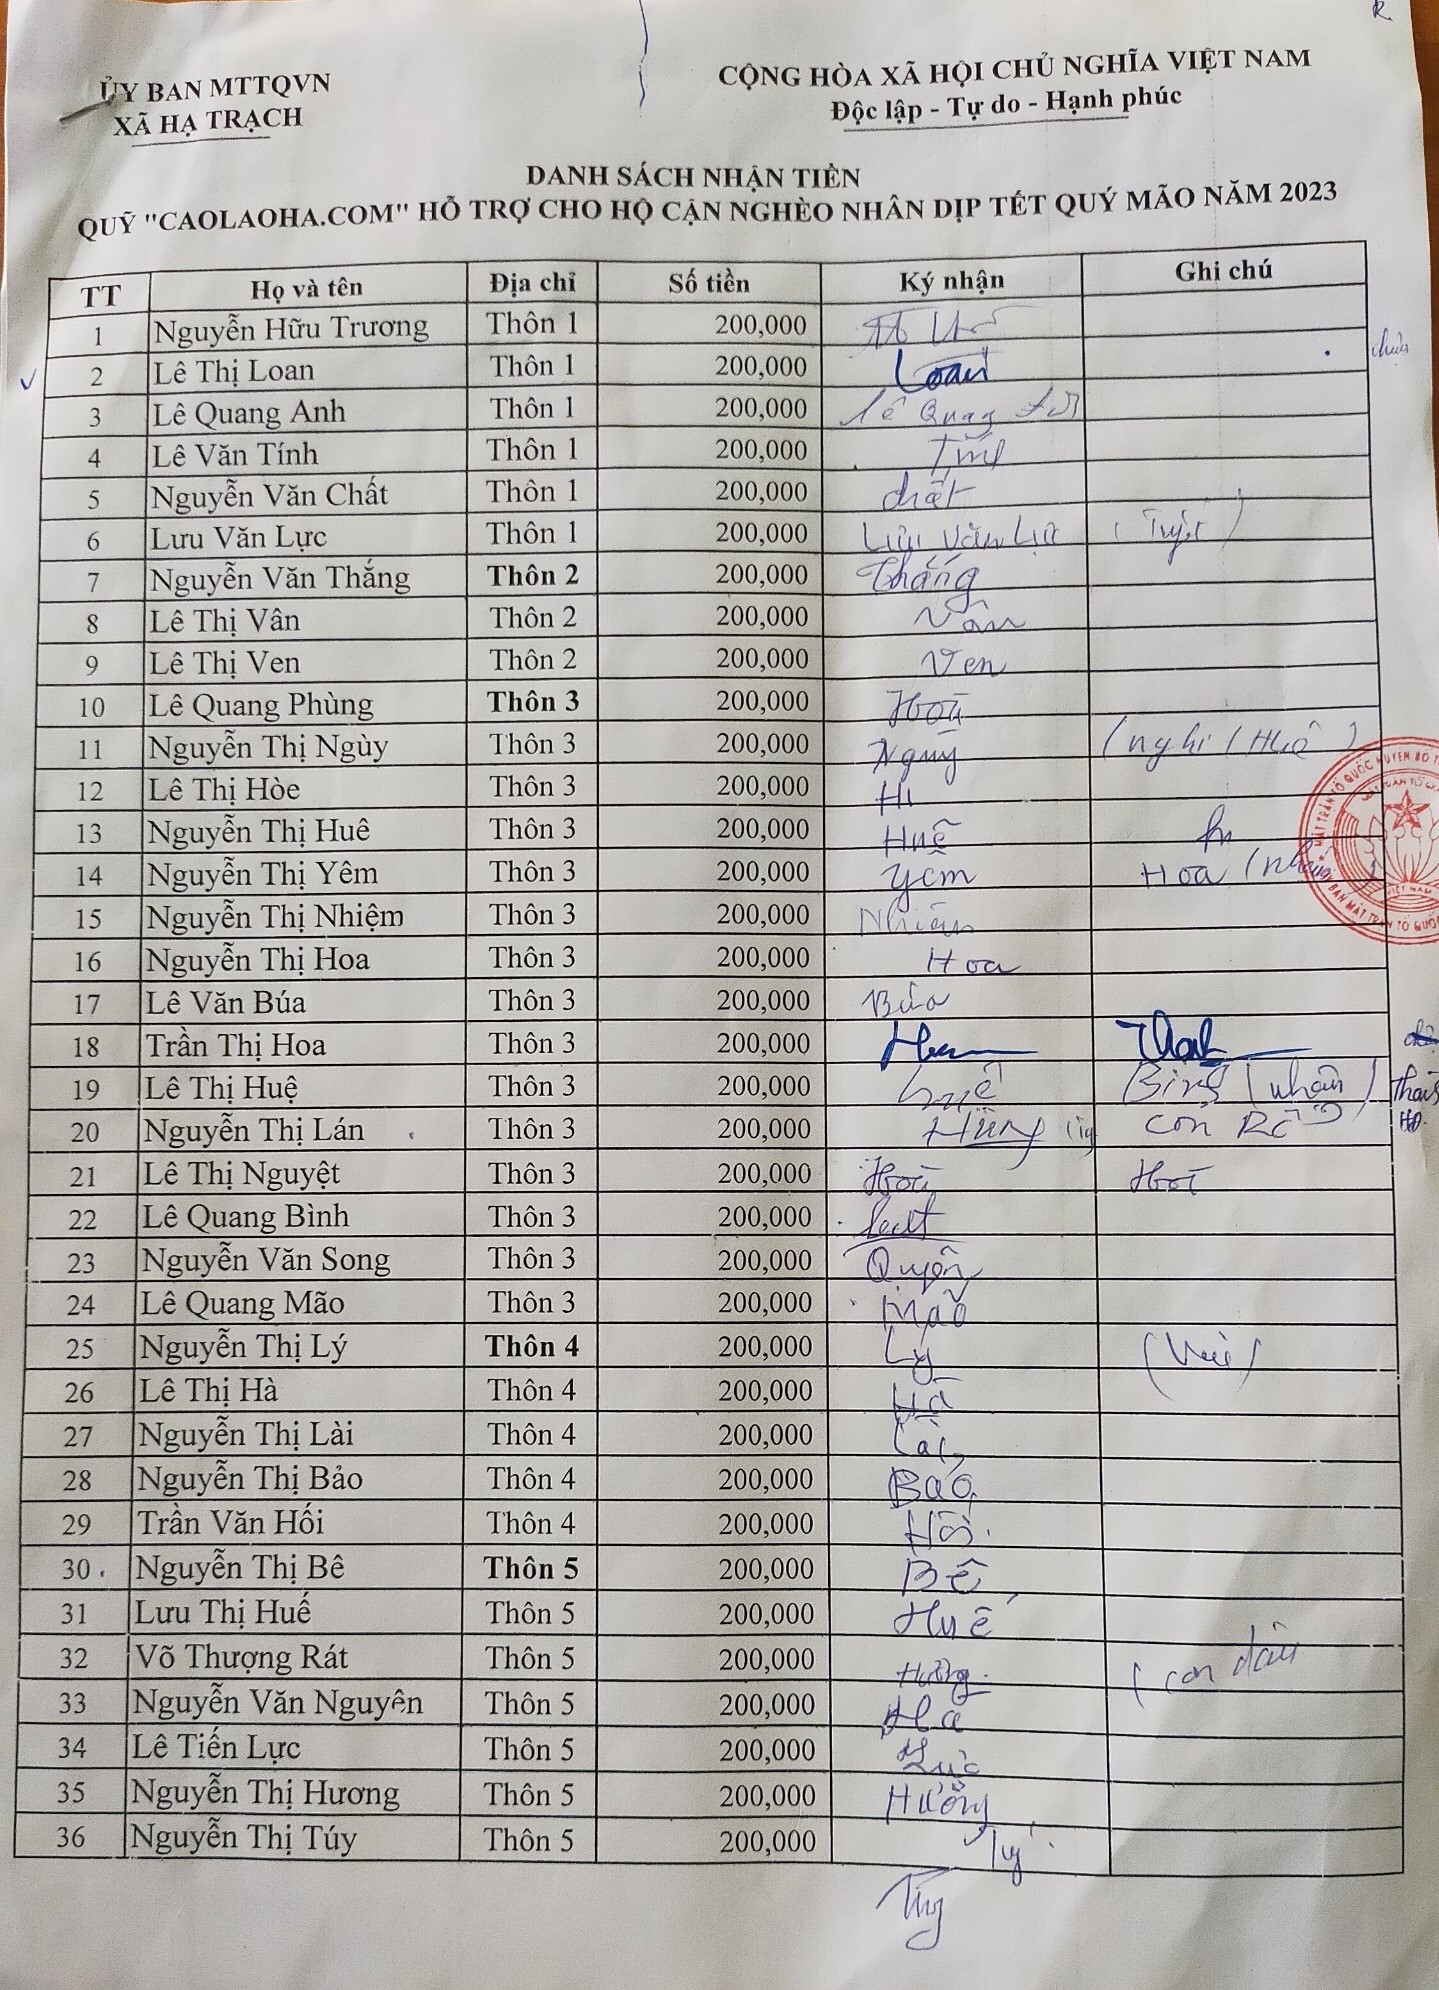 ỦY BAN MTTQVN
XÃ HẠ TRẠCH
CỘNG HÒA XÃ HỘI CHỦ NGHĨA VIỆT NAM
Độc lập - Tự do - Hạnh phúc
DANH SÁCH NHẬN TIỀN
QUỸ "CAOLAOHA.COM" HỖ TRỢ CHO HỘ CẬN NGHÈO NHÂN DỊP TẾT QUÝ MÃO NĂM 2023
TT Họ và tên Địa chỉ Số tiền Ký nhận Ghi chú
1 Nguyễn Hữu Trương Thôn 1 200,000
2 Lê Thị Loan Thôn 1 200,000 Loan
3 Lê Quang Anh Thôn 1 200,000 Lê Quang
4 Lê Văn Tính Thôn 1 200,000
5 Nguyễn Văn Chất Thôn 1 200,000 chất
6 Lưu Văn Lực Thôn 1 200,000 Lưu Văn Lực
7 Nguyễn Văn Thắng Thôn 2 200,000 Thắng
8 Lê Thị Vân Thôn 2 200,000 Vân
9 Lê Thị Ven Thôn 2 200,000 Ven
10 Lê Quang Phùng Thôn 3 200,000
11 Nguyễn Thị Ngùy Thôn 3 200,000 Nguỳ
12 Lê Thị Hòe Thôn 3 200,000
13 Nguyễn Thị Huê Thôn 3 200,000 Huê
14 Nguyễn Thị Yêm Thôn 3 200,000 Yêm Hoa (nhận)
15 Nguyễn Thị Nhiệm Thôn 3 200,000 Nhiệm
16 Nguyễn Thị Hoa Thôn 3 200,000 Hoa
17 Lê Văn Búa Thôn 3 200,000 Búa
18 Trần Thị Hoa Thôn 3 200,000
19 Lê Thị Huệ Thôn 3 200,000 Huệ
20 Nguyễn Thị Lán Thôn 3 200,000 Hùng con Rể
21 Lê Thị Nguyệt Thôn 3 200,000
22 Lê Quang Bình Thôn 3 200,000
23 Nguyễn Văn Song Thôn 3 200,000
24 Lê Quang Mão Thôn 3 200,000 Mão
25 Nguyễn Thị Lý Thôn 4 200,000 Lý
26 Lê Thị Hà Thôn 4 200,000 Hà
27 Nguyễn Thị Lài Thôn 4 200,000 Lài
28 Nguyễn Thị Bảo Thôn 4 200,000 Bảo
29 Trần Văn Hối Thôn 4 200,000 Hối
30 Nguyễn Thị Bê Thôn 5 200,000 Bê
31 Lưu Thị Huế Thôn 5 200,000 Huế
32 Võ Thượng Rát Thôn 5 200,000 Hường (con dâu
33 Nguyễn Văn Nguyên Thôn 5 200,000
34 Lê Tiến Lực Thôn 5 200,000 Lực
35 Nguyễn Thị Hương Thôn 5 200,000 Hương
36 Nguyễn Thị Túy Thôn 5 200,000